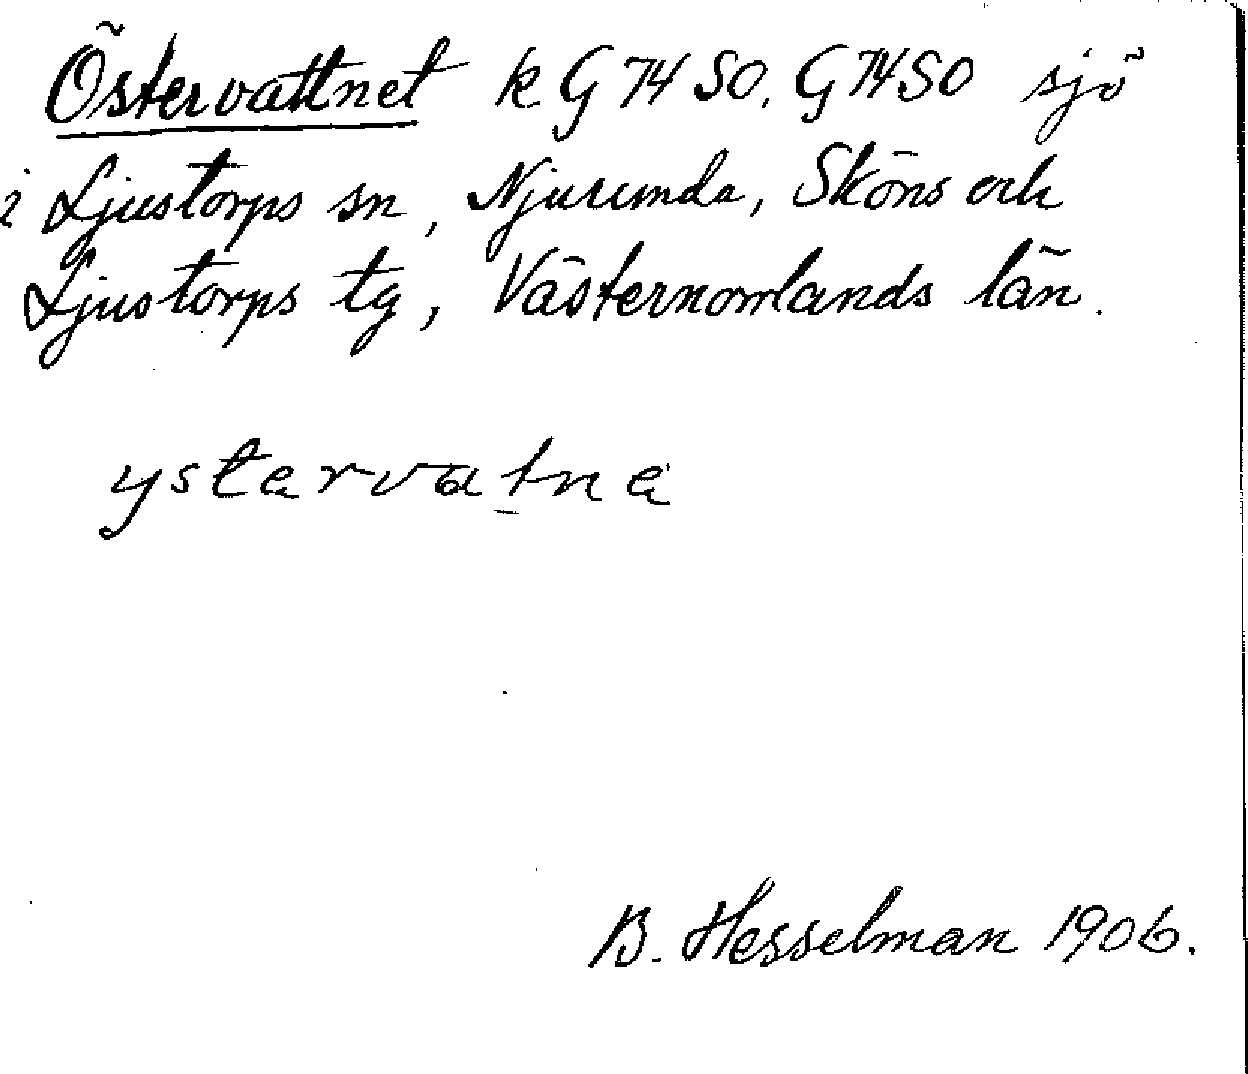 Östervattnet k G 74 SO. G 74 SO sjö
i Ljustorps sn, Njurunda, Sköns och
Ljustorps tg, Västernorrlands län.
ystervatne
B. Hesselman 1906.